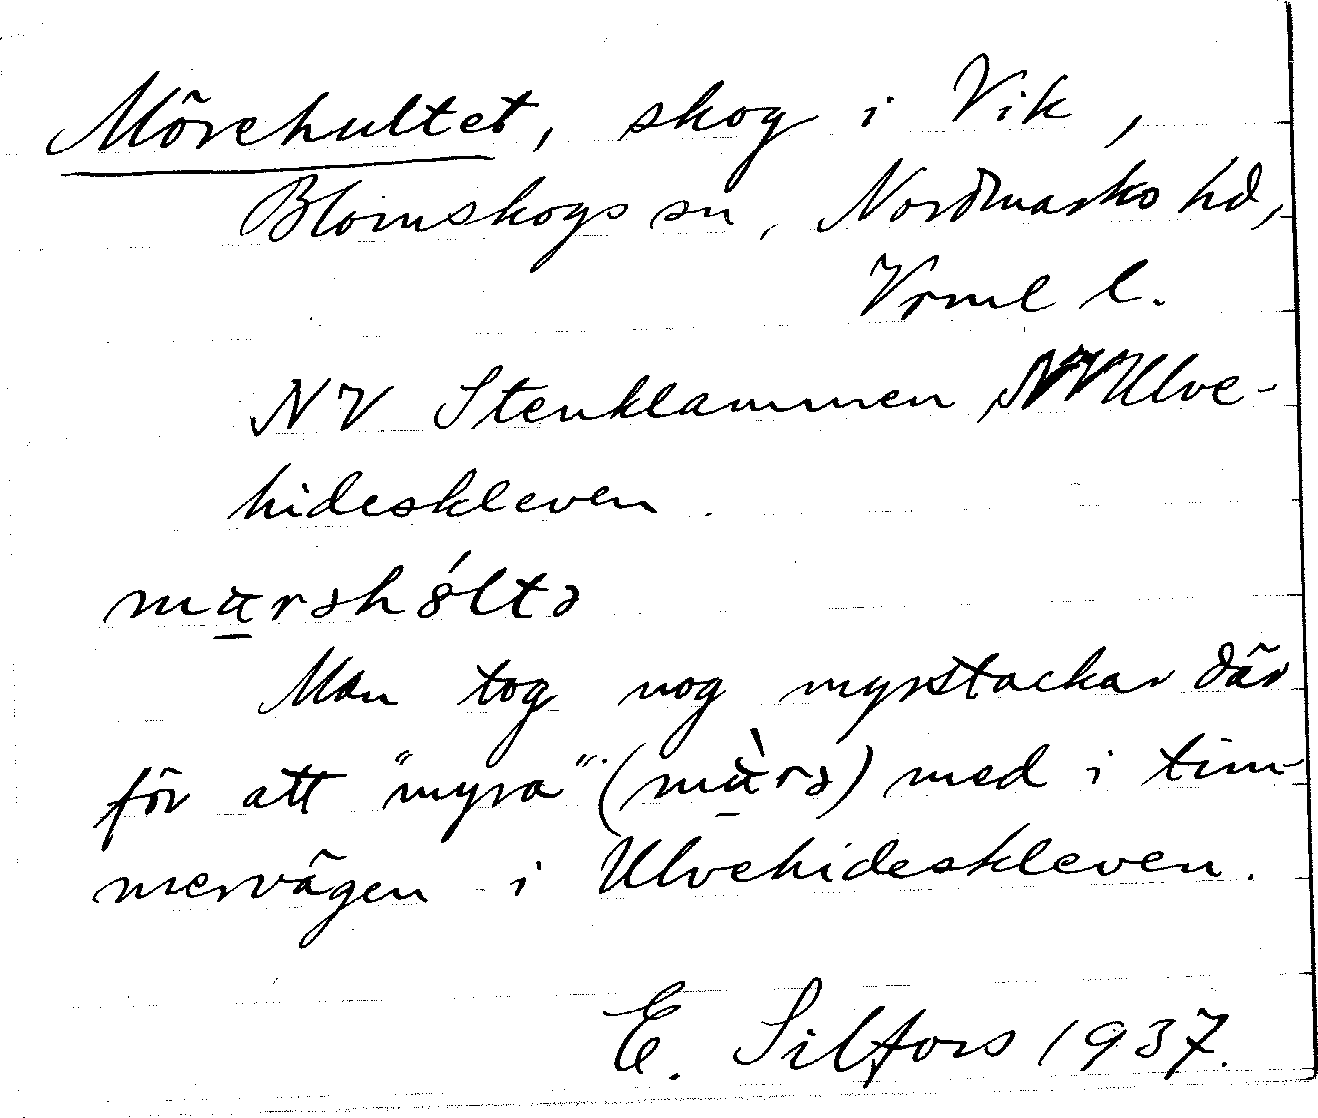 Mörehultet, skog i Vik,
Blomskogs sn, Nordmarks hd,
Vrml l.
NV Stenklammen NV Ulve-
hideskleven.
Man tog nog myrstackar där
för att "myra" (          ) med i tim-
mervägen i Ulvehideskleven.
E. Silfors 1937.